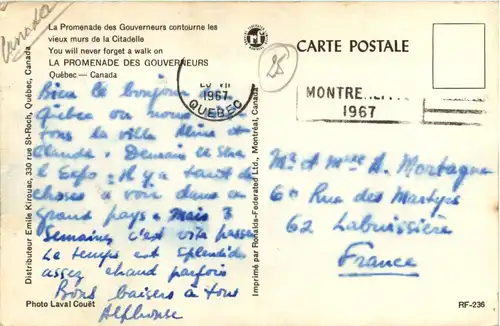 Canada
La Promenade des Gouverneurs contourne les
vieux murs de la Citadelle
You will never forget a walk on
LA PROMENADE DES GOUVERNEURS
Québec — Canada
Distributeur Emile Kirouac, 330 rue St-Roch, Québec, Canada
Bien le bonjour de
Quebec ou nous
tons la ville Aline et
Claude. Demain ce sera
l Expo. Il y a tant de
choses a voir dans ce
grand pays. Mais 3
Semaines c'est vite passé
Le temps est splendide
assez chaud parfois
Bons baisers à tous
Alphonse
Photo Laval Couët
Imprimé par Ronalds-Federated Ltd., Montréal, Canada
VII
1967
QUEBEC
25
CARTE POSTALE
MONTRE
1967
Mr et Mme A. Mortagne
60 Rue des Martyrs
62 Labuissière
France
RF-236